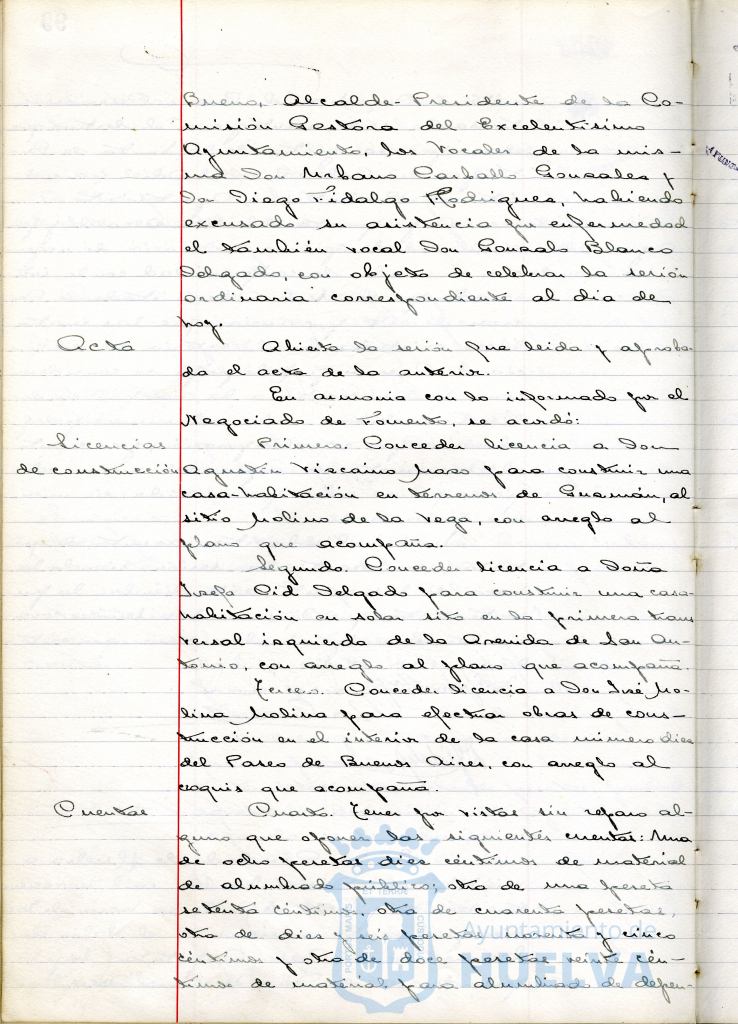 Bueno, Alcalde-Presidente de la Co-
misión Gestora del Excelentísimo
Ayuntamiento, los Vocales de la mis-
ma Don Urbano Carballo Gonzales y
Don Diego Fidalgo Rodrigues, habiendo
excusado su asistencia por enfermedad
el también vocal Don Gonzalo Blanco
Delgado, con objeto de celebrar la sesión
ordinaria correspondiente al día de
hoy.
Acta
Abierta la sesión fue leida y aproba-
da el acta de la anterior.
En armonia con lo informado por el
Negociado de Fomento, se acordó:
Licencias
de construcción
Primero. Conceder licencia a Don
Agustín Viscaino para construir una
casa-habitación en terrenos de Guzmán, al
sitio Molino de la Vega, con arreglo al
plano que acompaña.
Segundo. Conceder licencia a Doña
Josefa Cid Delgado para construir una casa-
habitación en solar sito en la primera trans
versal izquierda de la Avenida de San An-
tonio, con arreglo al plano que acompaña.
Tercero. Conceder licencia a Don José Mo-
lina Molina para efectuar obras de cons-
trucción en el interior de la casa número dies
del Paseo de Buenos Aires, con arreglo al
croquis que acompaña.
Cuentas
Cuarto. Tener por vistas sin reparo al-
guno que oponer las siguientes cuentas: Una
de ocho pesetas dies céntimos de material
de alumbrado público; otra de una peseta
setenta céntimos, otra de cuarenta pesetas,
otra de dies y seis pesetas noventa y cinco
céntimos y otra de doce pesetas veinte cén-
timos de material para alumbrado de depen-
Ayuntamiento de
HUELVA